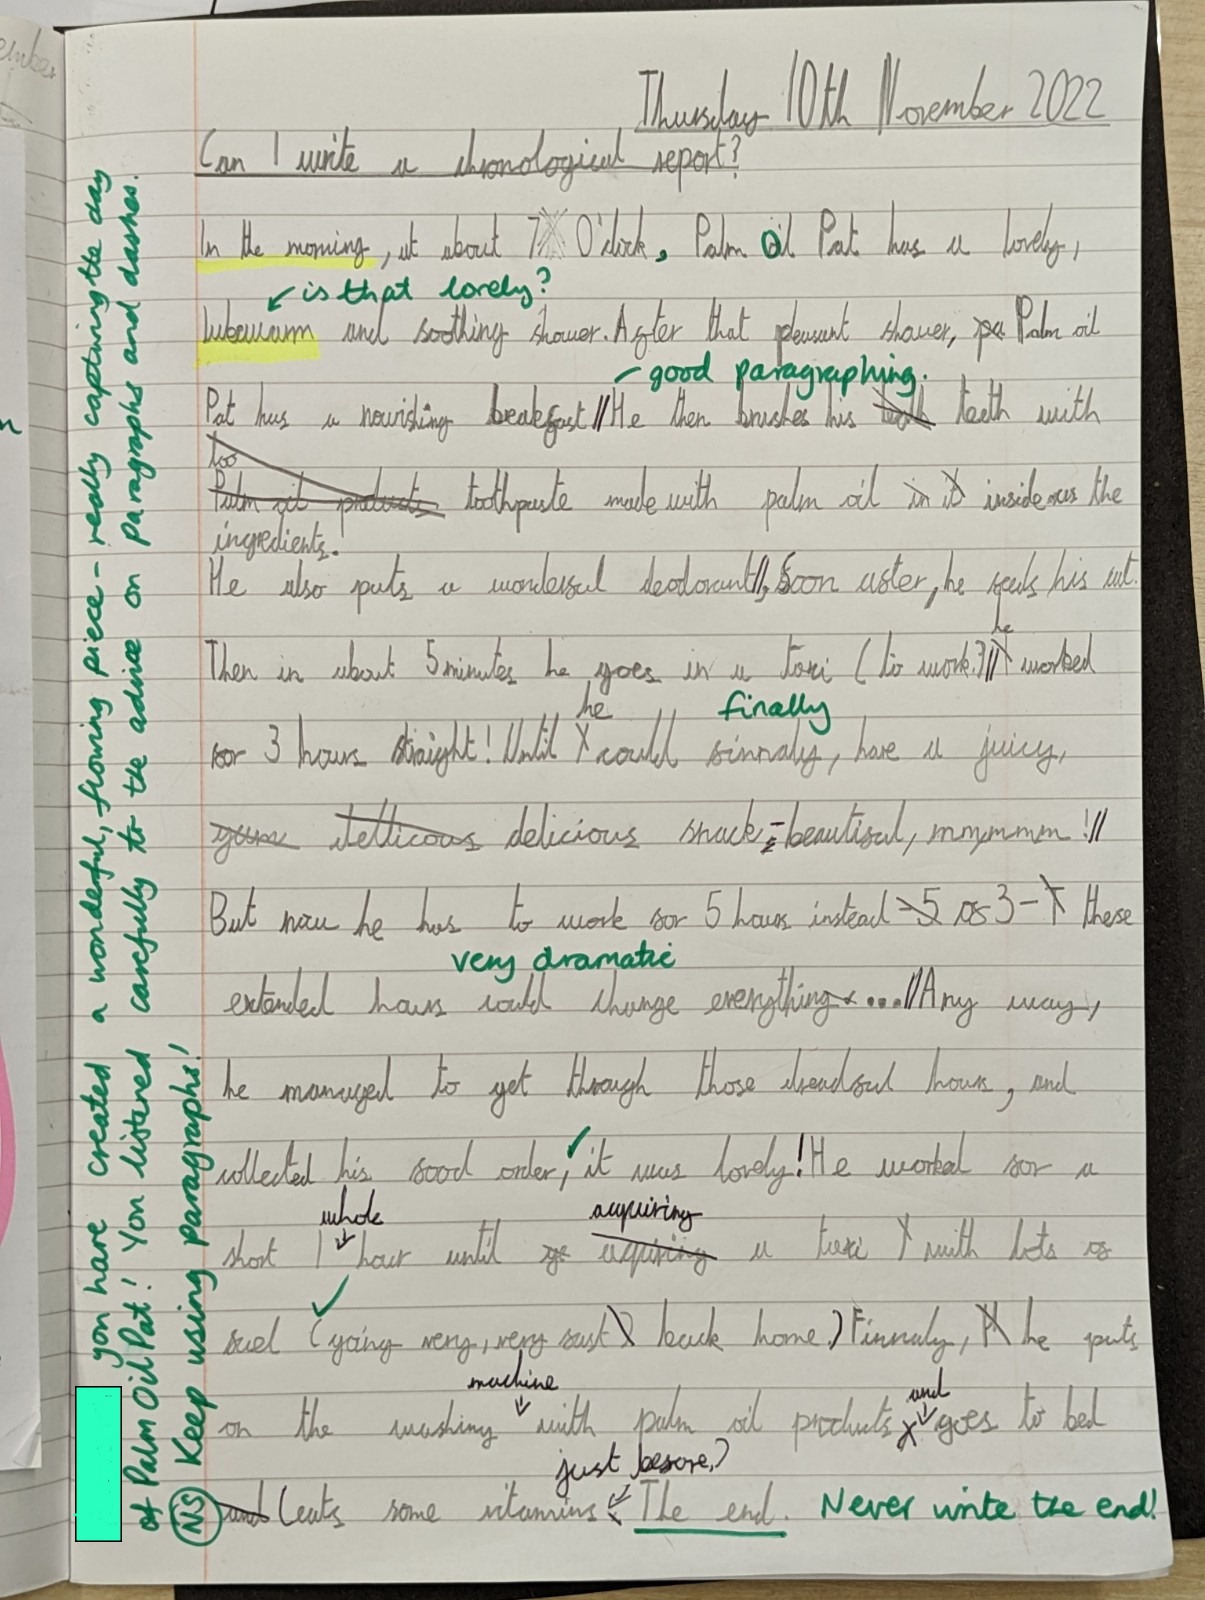 Thursday 10th November 2022
Can I write a chronological report?
In the morning, at about 7 O'clock, Palm Oil Pat has a lovely,
is that lovely?
lukewarm and soothing shower. After that pleasant shower, pa Palm oil
good paragraphing.
Pat has a nourishing breakfast // He then brushes his teeth teeth with
too
Palm oil products toothpaste made with palm oil in it inside as the
ingredients.
He also puts a wonderful deodorant //, Soon after, he feeds his cat.
he
Then in about 5 minutes he goes in a taxi (to work.) // I worked
he finally
for 3 hours straight! Until I could finnaly, have a juicy,
yum dellicous delicious snack - beautiful, mmmmmm! //
But now he has to work for 5 hours instead - 5 of 3 - I these
very dramatic
extended hours could change everything .... // Any way,
he managed to get through those dreadful hours, and
collected his food order, it was lovely! He worked for a
whole acquiring
short 1 hour until aquiring a taxi with lots of
fuel (going very, very fast) back home.) Finnaly, he puts
machine and
on the washing with palm oil products goes to bed
just before,)
and (eats some vitamins The end. Never write the end!
you have created a wonderful, flowing piece - really capturing the day
of Palm Oil Pat! You listened carefully to the advice on paragraphs and dashes.
NS Keep using paragraphs!